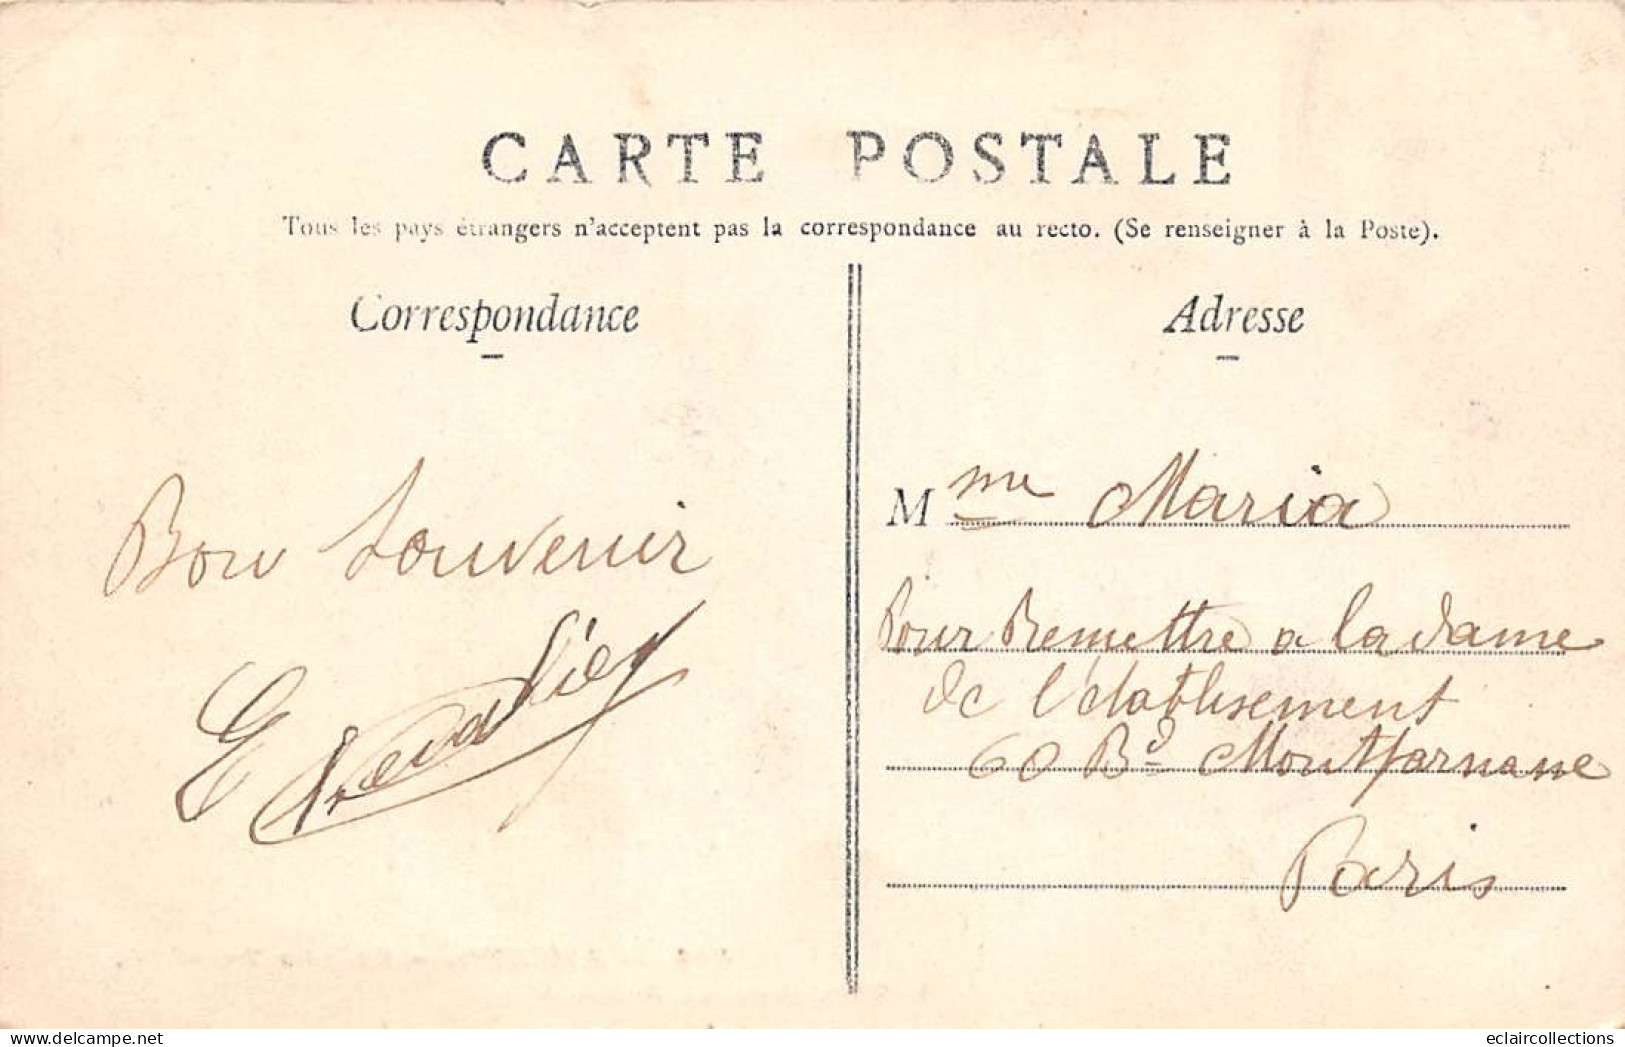 CARTE POSTALE
Tous les pays étrangers n'acceptent pas la correspondance au recto. (Se renseigner à la Poste).
Correspondance
Bon Souvenir
E
Adresse
Mme Maria
Pour Remettre a la dame
de l'établisement
60 Bd Montparnane
Paris
eclaircollections